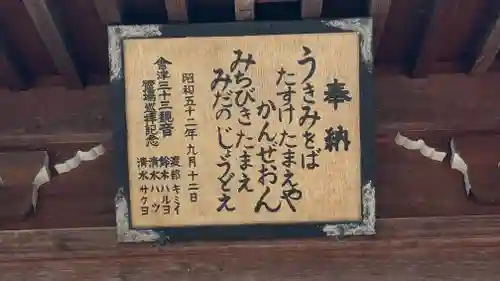 奉納
うきみをば
たすけたまえや
かんぜおん
みちびきたまえ
みだのじょうどえ
昭和五十二年九月十二日
會津三十三観音
霊場巡拝記念
渡部キミイ
鈴木ハルヨ
清水ハツ
清水サクヨ